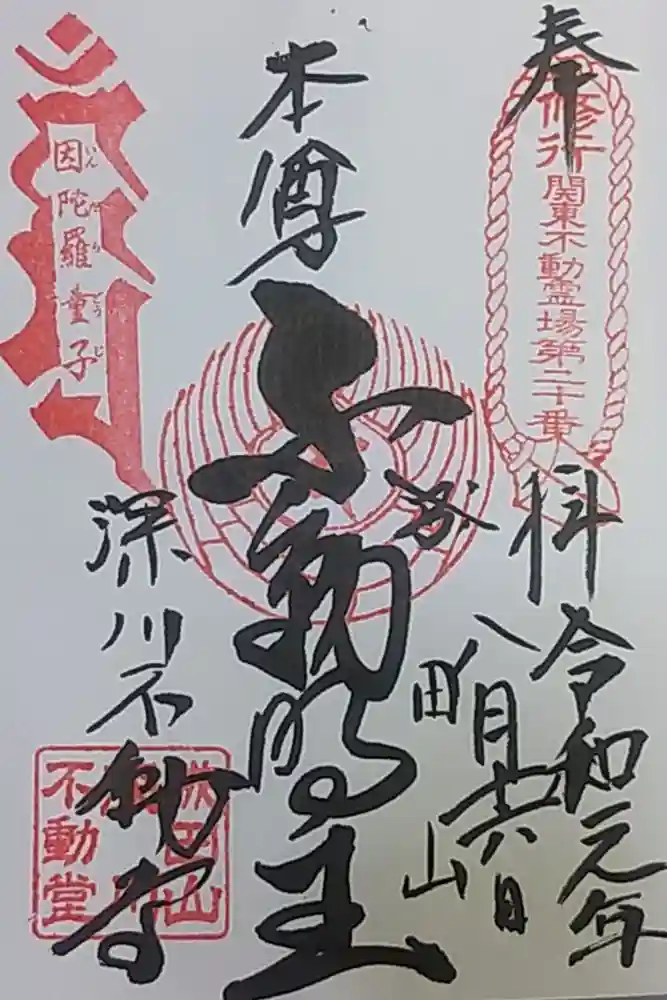 奉
拝
修行 関東不動霊場第二十番
令和元年
八月十六日
本尊
不動明王
成田山
深川不動尊
因陀羅童子
いんだらどうじ
不動堂